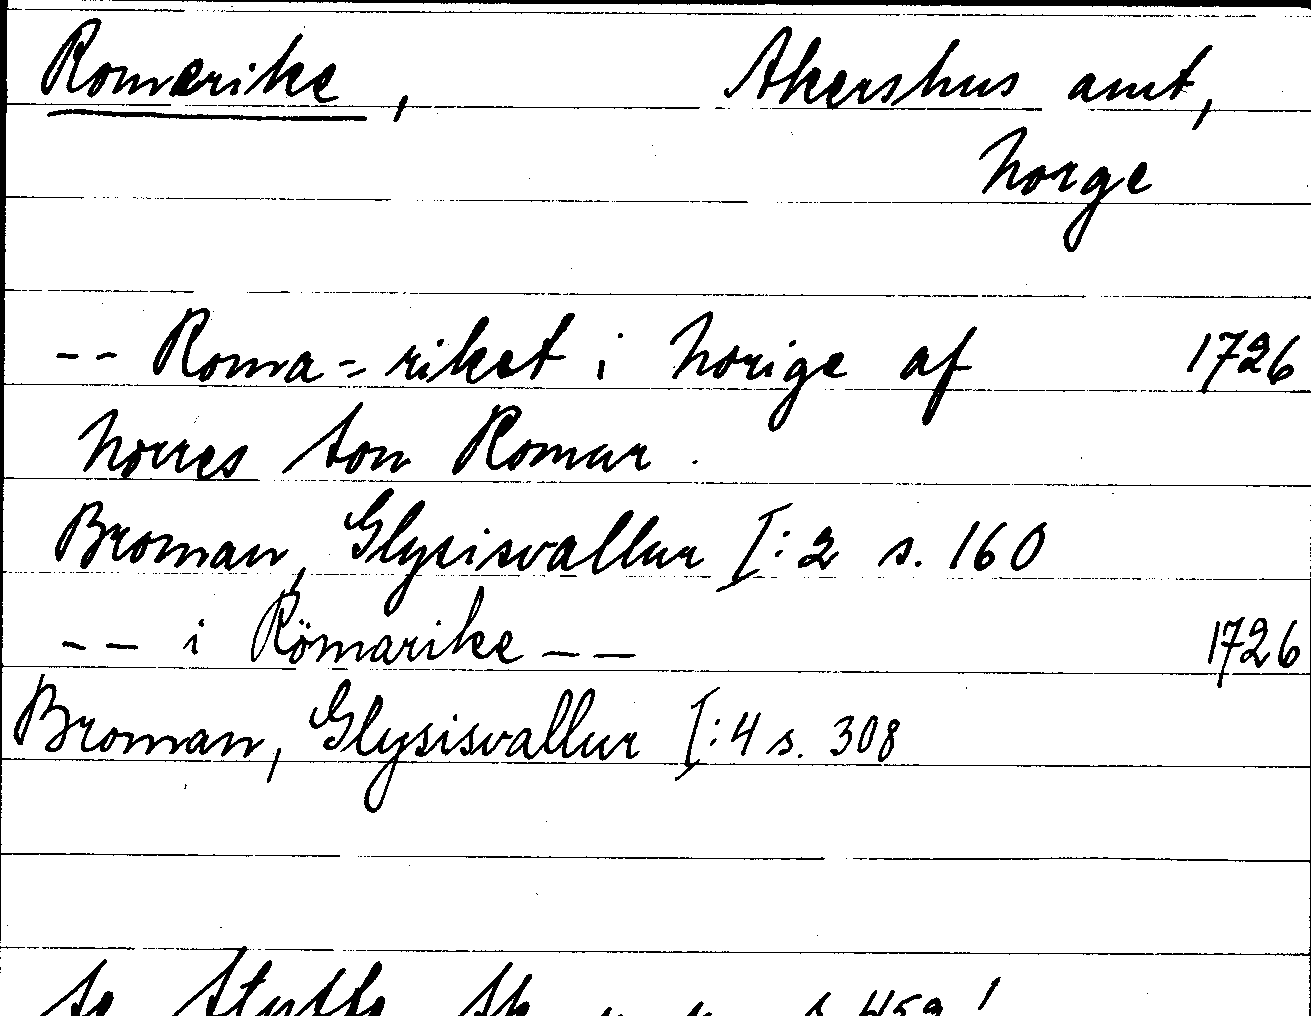 Romerike, Akershus amt,
Norge
-- Roma=riket i Norige af 1726
Norres son Romur.
Broman, Glysisvallur I:2 s. 160
-- i Römarike -- 1726
Broman, Glysisvallur I:4 s. 308
Se